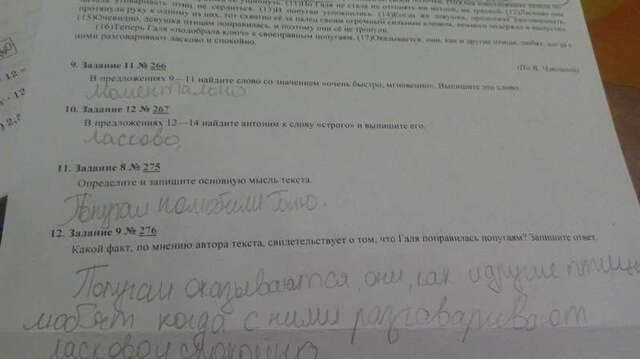 протянула руку к одному из них, тот схватил её за палец своим огромным сильным клювом, немного подержал и выпустил.
(15)Очевидно, девушка птицам понравилась, и поэтому они её не тронули.
(16)Теперь Галя «подобрала ключ» к своенравным попугаям. (17)Оказывается, они, как и другие птицы, любят, когда с
ними разговаривают ласково и спокойно.
(По В. Чаплиной)
9. Задание 11 № 266
В предложениях 9—11 найдите слово со значением «очень быстро, мгновенно». Выпишите это слово.
Моментально
10. Задание 12 № 267
В предложениях 12—14 найдите антоним к слову «строго» и выпишите его.
Ласково,
11. Задание 8 № 275
Определите и запишите основную мысль текста.
Попугаи полюбили Галю.
12. Задание 9 № 276
Какой факт, по мнению автора текста, свидетельствует о том, что Галя понравилась попугаям? Запишите ответ.
Попугаи оказываются, они, как и другие птицы
любят когда с ними разговаривают
ласково и спокойно